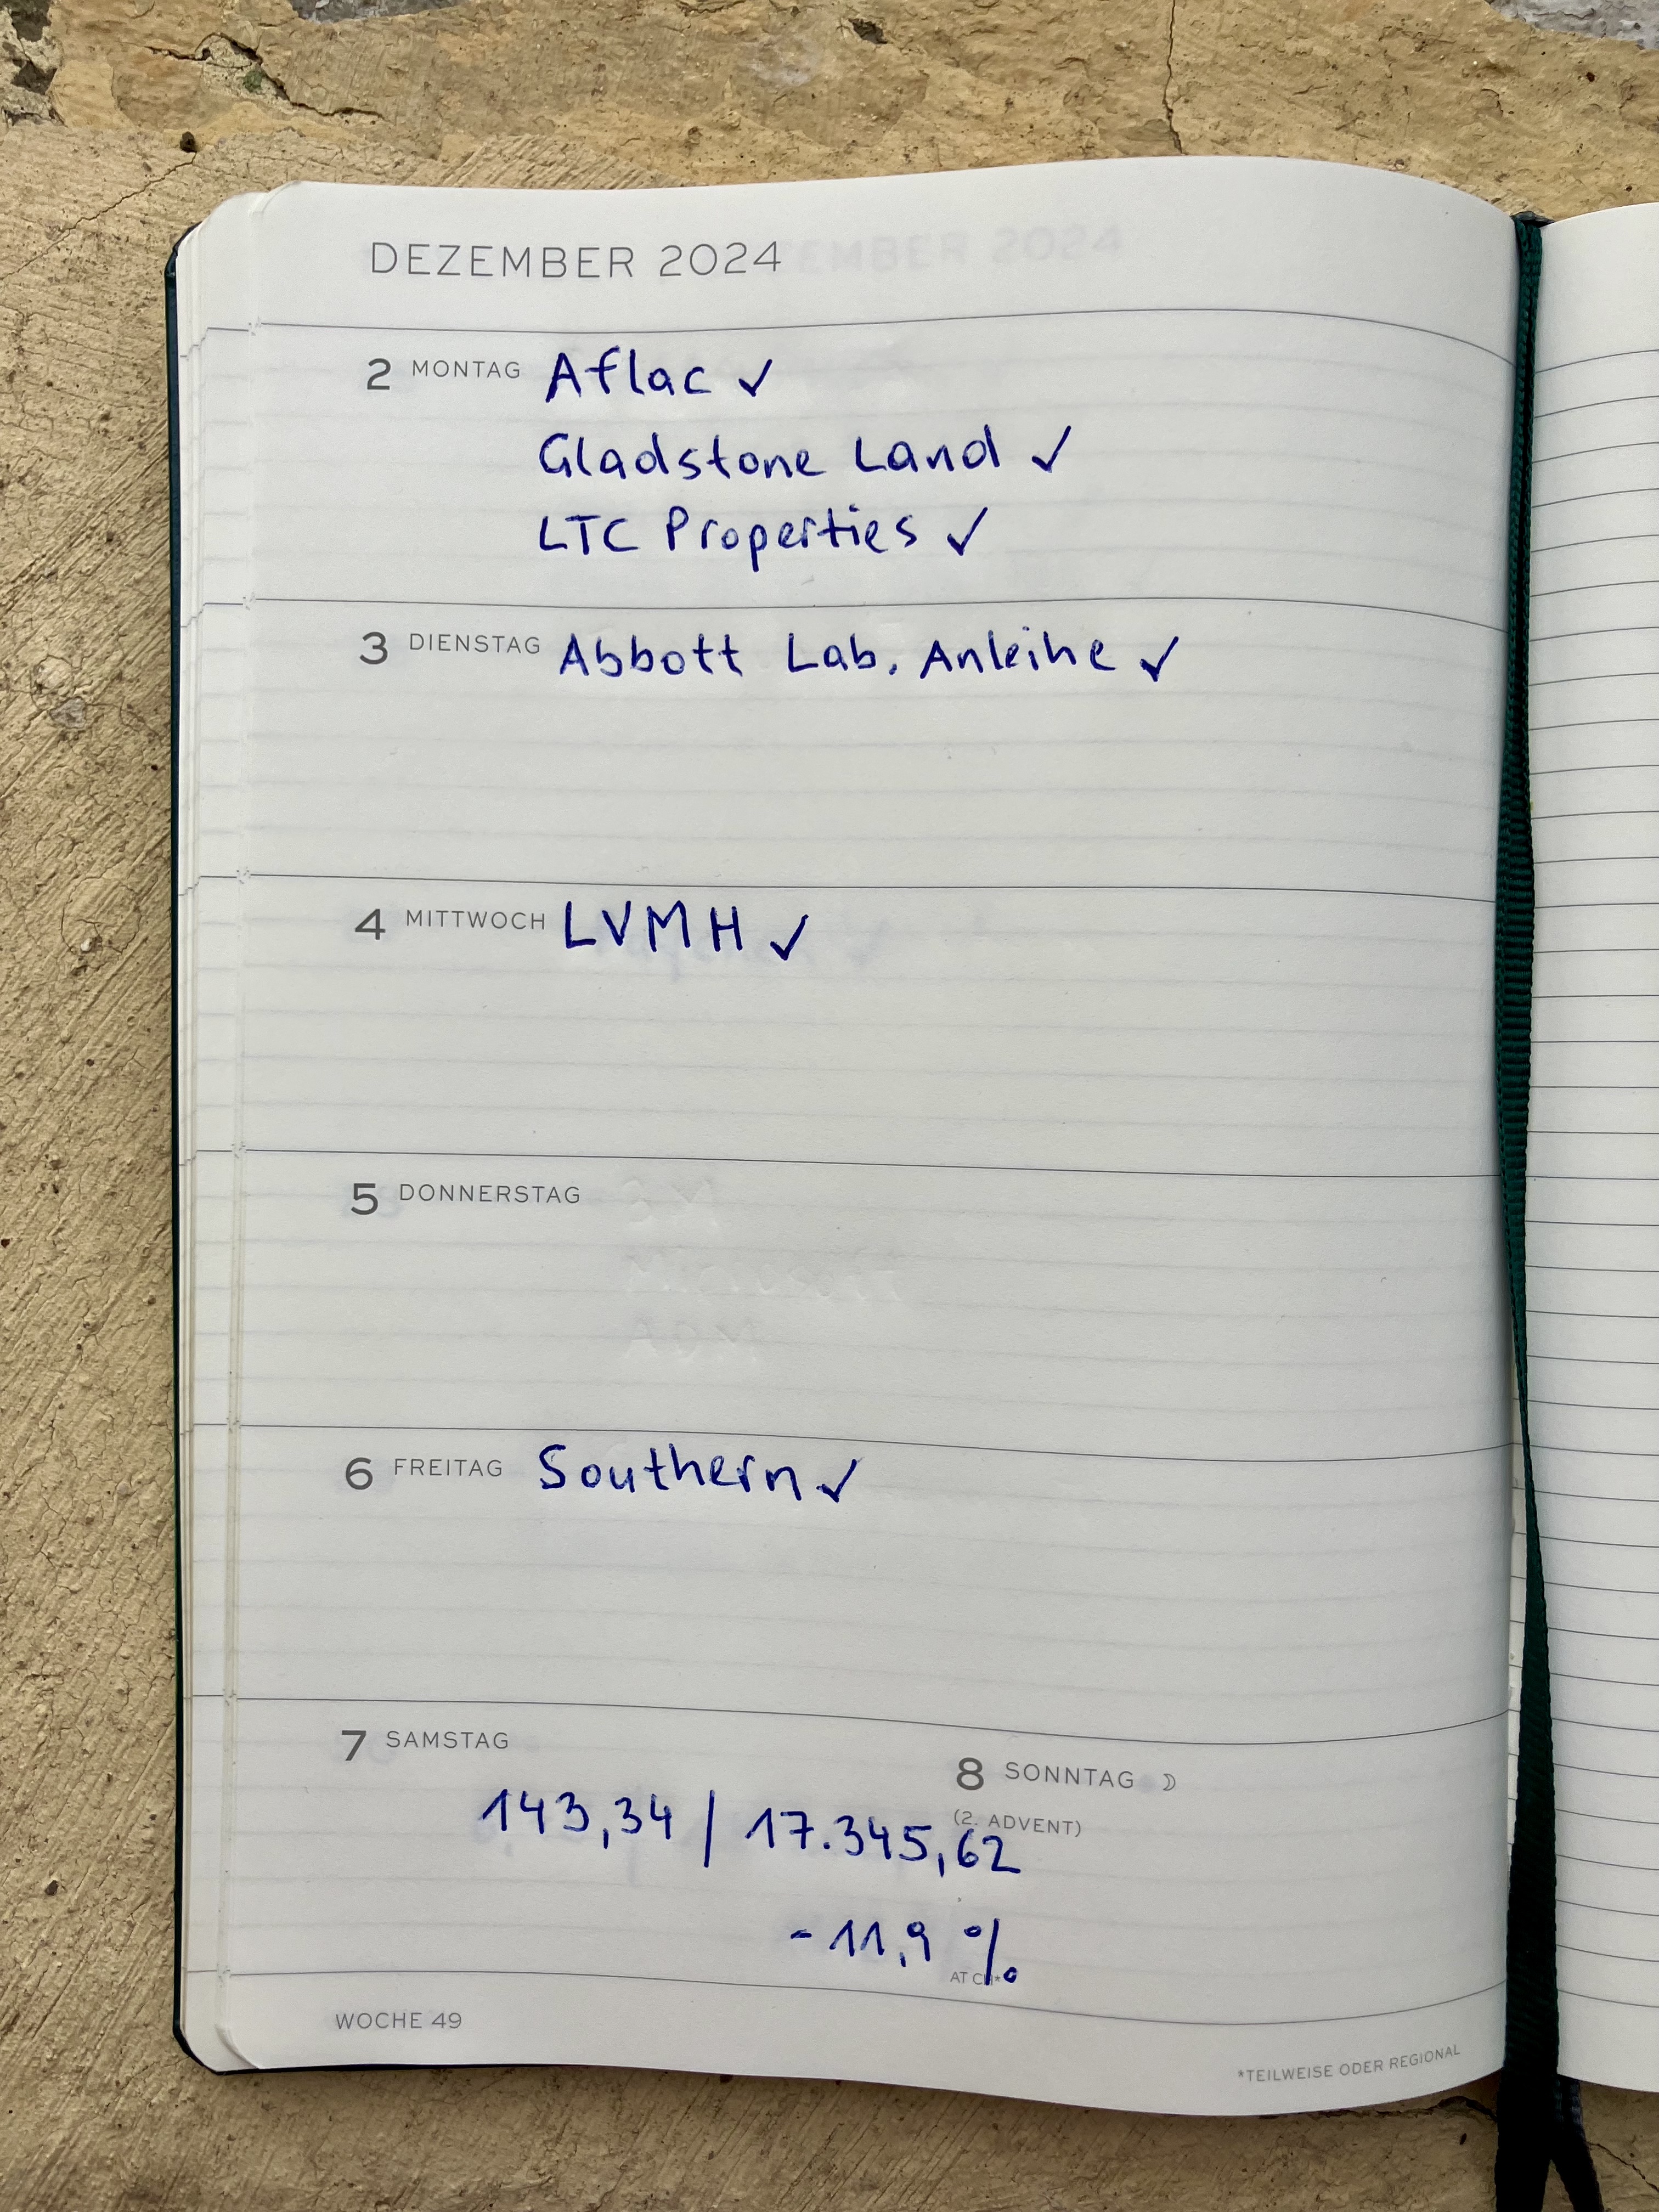 DEZEMBER 2024
2 MONTAG Aflac ✓
Gladstone Land ✓
LTC Properties ✓
3 DIENSTAG Abbott Lab. Anleihe ✓
4 MITTWOCH LVMH ✓
5 DONNERSTAG
6 FREITAG Southern ✓
7 SAMSTAG
8 SONNTAG ☽
(2. ADVENT)
143,34 / 17.345,62
- 11,9 %
AT
WOCHE 49
*TEILWEISE ODER REGIONAL